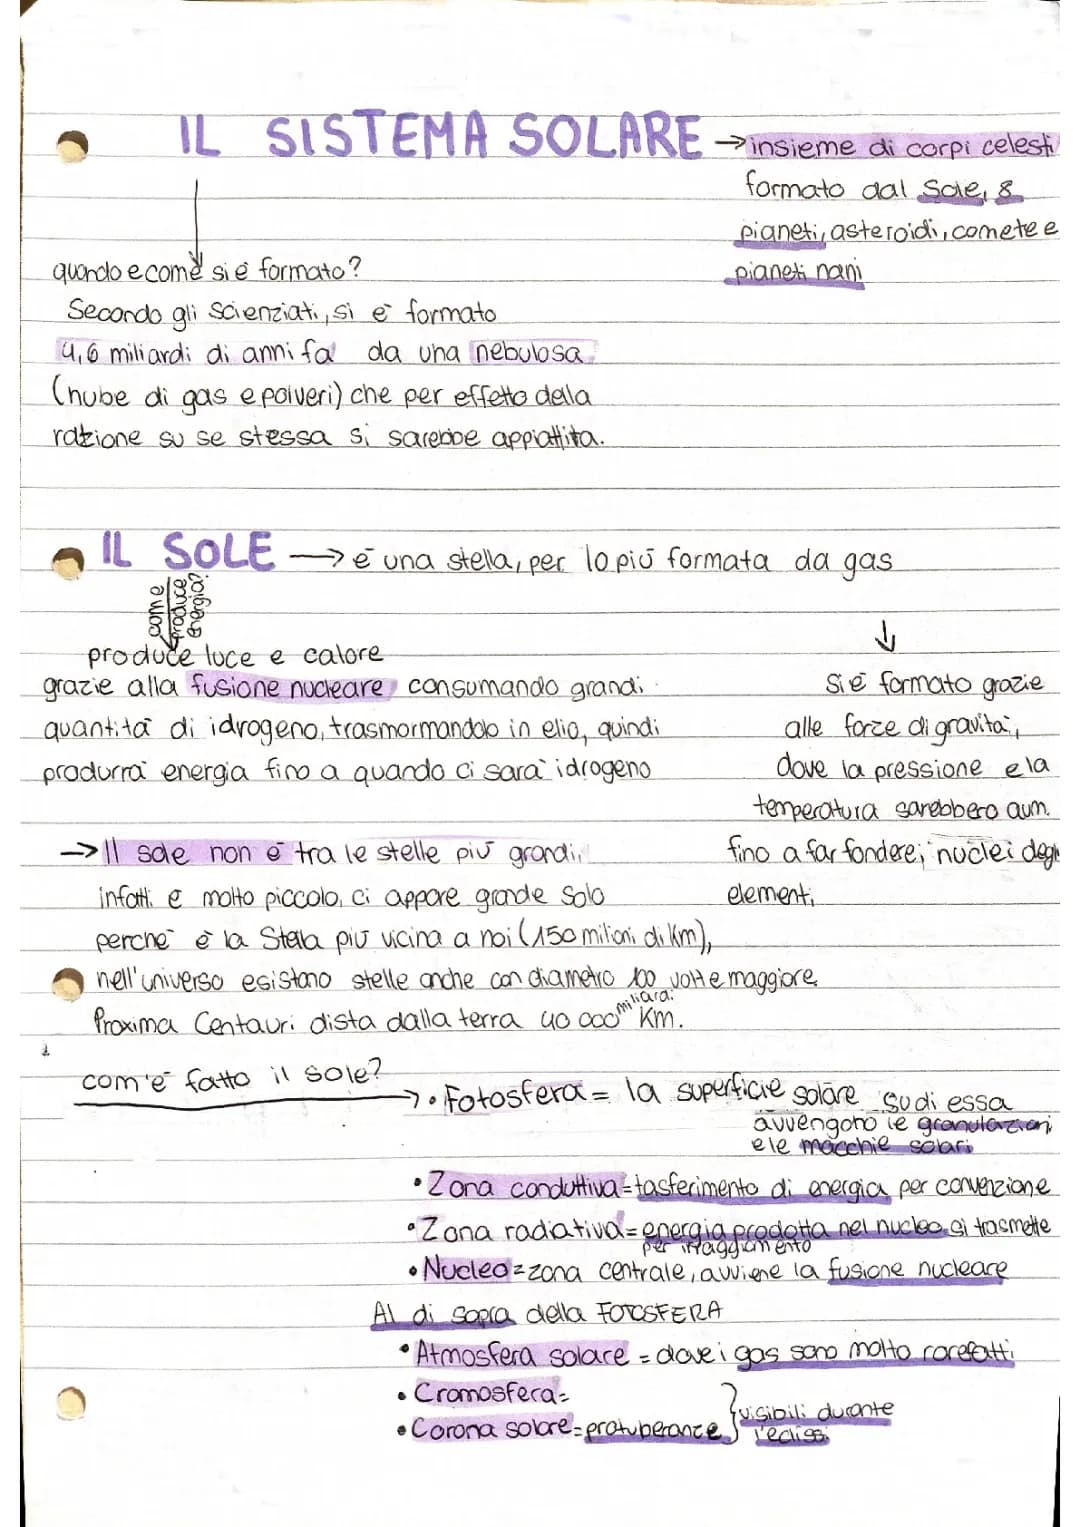 IL SISTEMA SOLARE → insieme di corpi celesti
formato dal Sole, 8
pianeti, asteroidi, comete e
pianeti nani
quando e come si è formato?
Secondo gli scienziati, si è formato
4,6 miliardi di anni fa da una nebulosa
(nube di gas e polveri) che per effetto della
rotzione su se stessa si sarebbe appiattita.
IL SOLE → è una stella, per lo più formata da gas
come
produce
energia?
produce luce e calore
grazie alla fusione nucleare consumando grandi
quantità di idrogeno, trasmormandolo in elio, quindi
produrrà energia fino a quando ci sarà idrogeno
si è formato grazie
alle forze di gravità,
dove la pressione e la
temperatura sarebbero aum.
fino a far fondere i nuclei degli
elementi
→ Il sole non è tra le stelle più grandi,
infatti è molto piccolo, ci appare grande solo
perchè è la Stella più vicina a noi (150 milioni di Km),
nell'universo esistono stelle anche con diametro 100 volte maggiore
Proxima Centauri dista dalla terra 40 000 miliardi Km.
com'è fatto il sole?
→ • Fotosfera = la superficie solare su di essa
avvengono le granulazioni
e le macchie solari
• Zona conduttiva = tasferimento di energia per convenzione
• Zona radiativa = energia prodotta nel nucleo si trasmette
per irraggiamento
• Nucleo = zona centrale, avviene la fusione nucleare
Al di sopra della FOTOSFERA
• Atmosfera solare = dove i gas sono molto rarefatti
• Cromosfera =
• Corona solare = protuberanze } visibili durante
l'eclissi